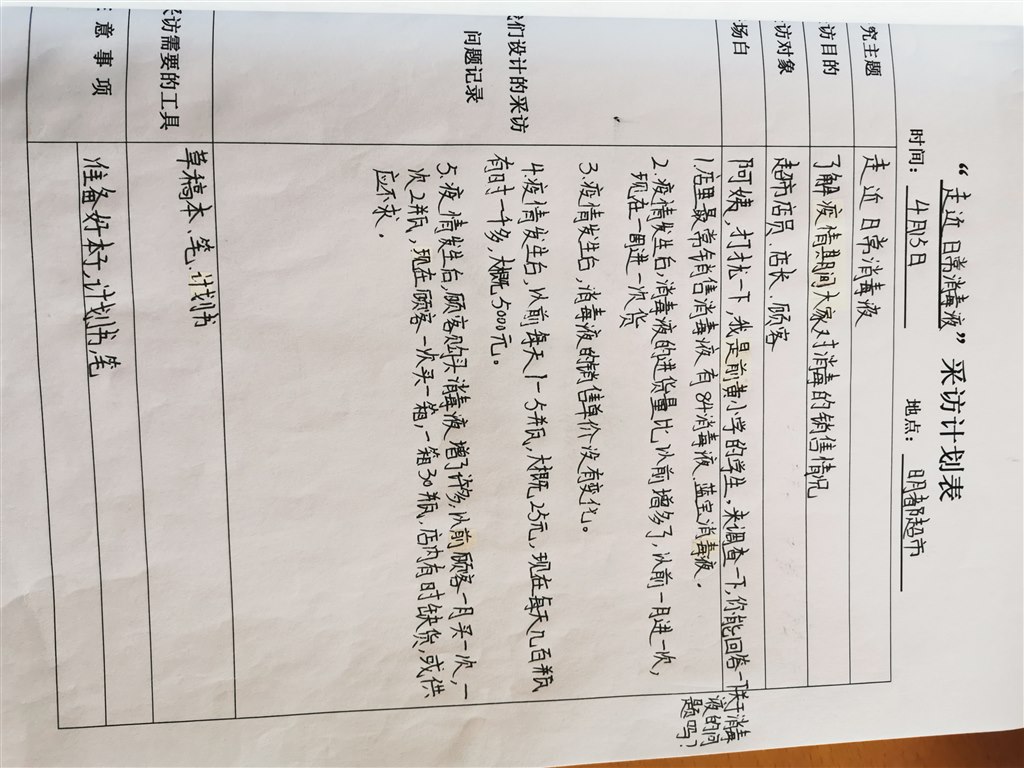 “走近日常消毒液”采访计划表
时间：4月15日 地点：明都超市
究主题 走近日常消毒液
访目的 了解疫情期间大家对消毒的销售情况
访对象 超市店员、店长、顾客
场白 阿姨，打扰一下，我是前黄小学的学生，来调查一下，你能回答一下关于消毒
液的问
题吗？
们设计的采访
问题记录
1.店里最常销售消毒液有84消毒液、蓝宝消毒液。
2.疫情发生后，消毒液的进货量比以前增多了，以前一月进一次，
现在一周进一次货
3.疫情发生后，消毒液的销售单价没有变化。
4.疫情发生后，以前每天1-5瓶，大概25元，现在每天几百瓶
有时一千多，大概5000元。
5.疫情发生后，顾客购买消毒液增了许多，以前顾客一月买一次，一
次2瓶，现在顾客一次买一箱，一箱30瓶，店内有时缺货，或供
应不求。
访需要的工具 草稿本、笔、计划书
意事项 准备好本子，计划书，笔